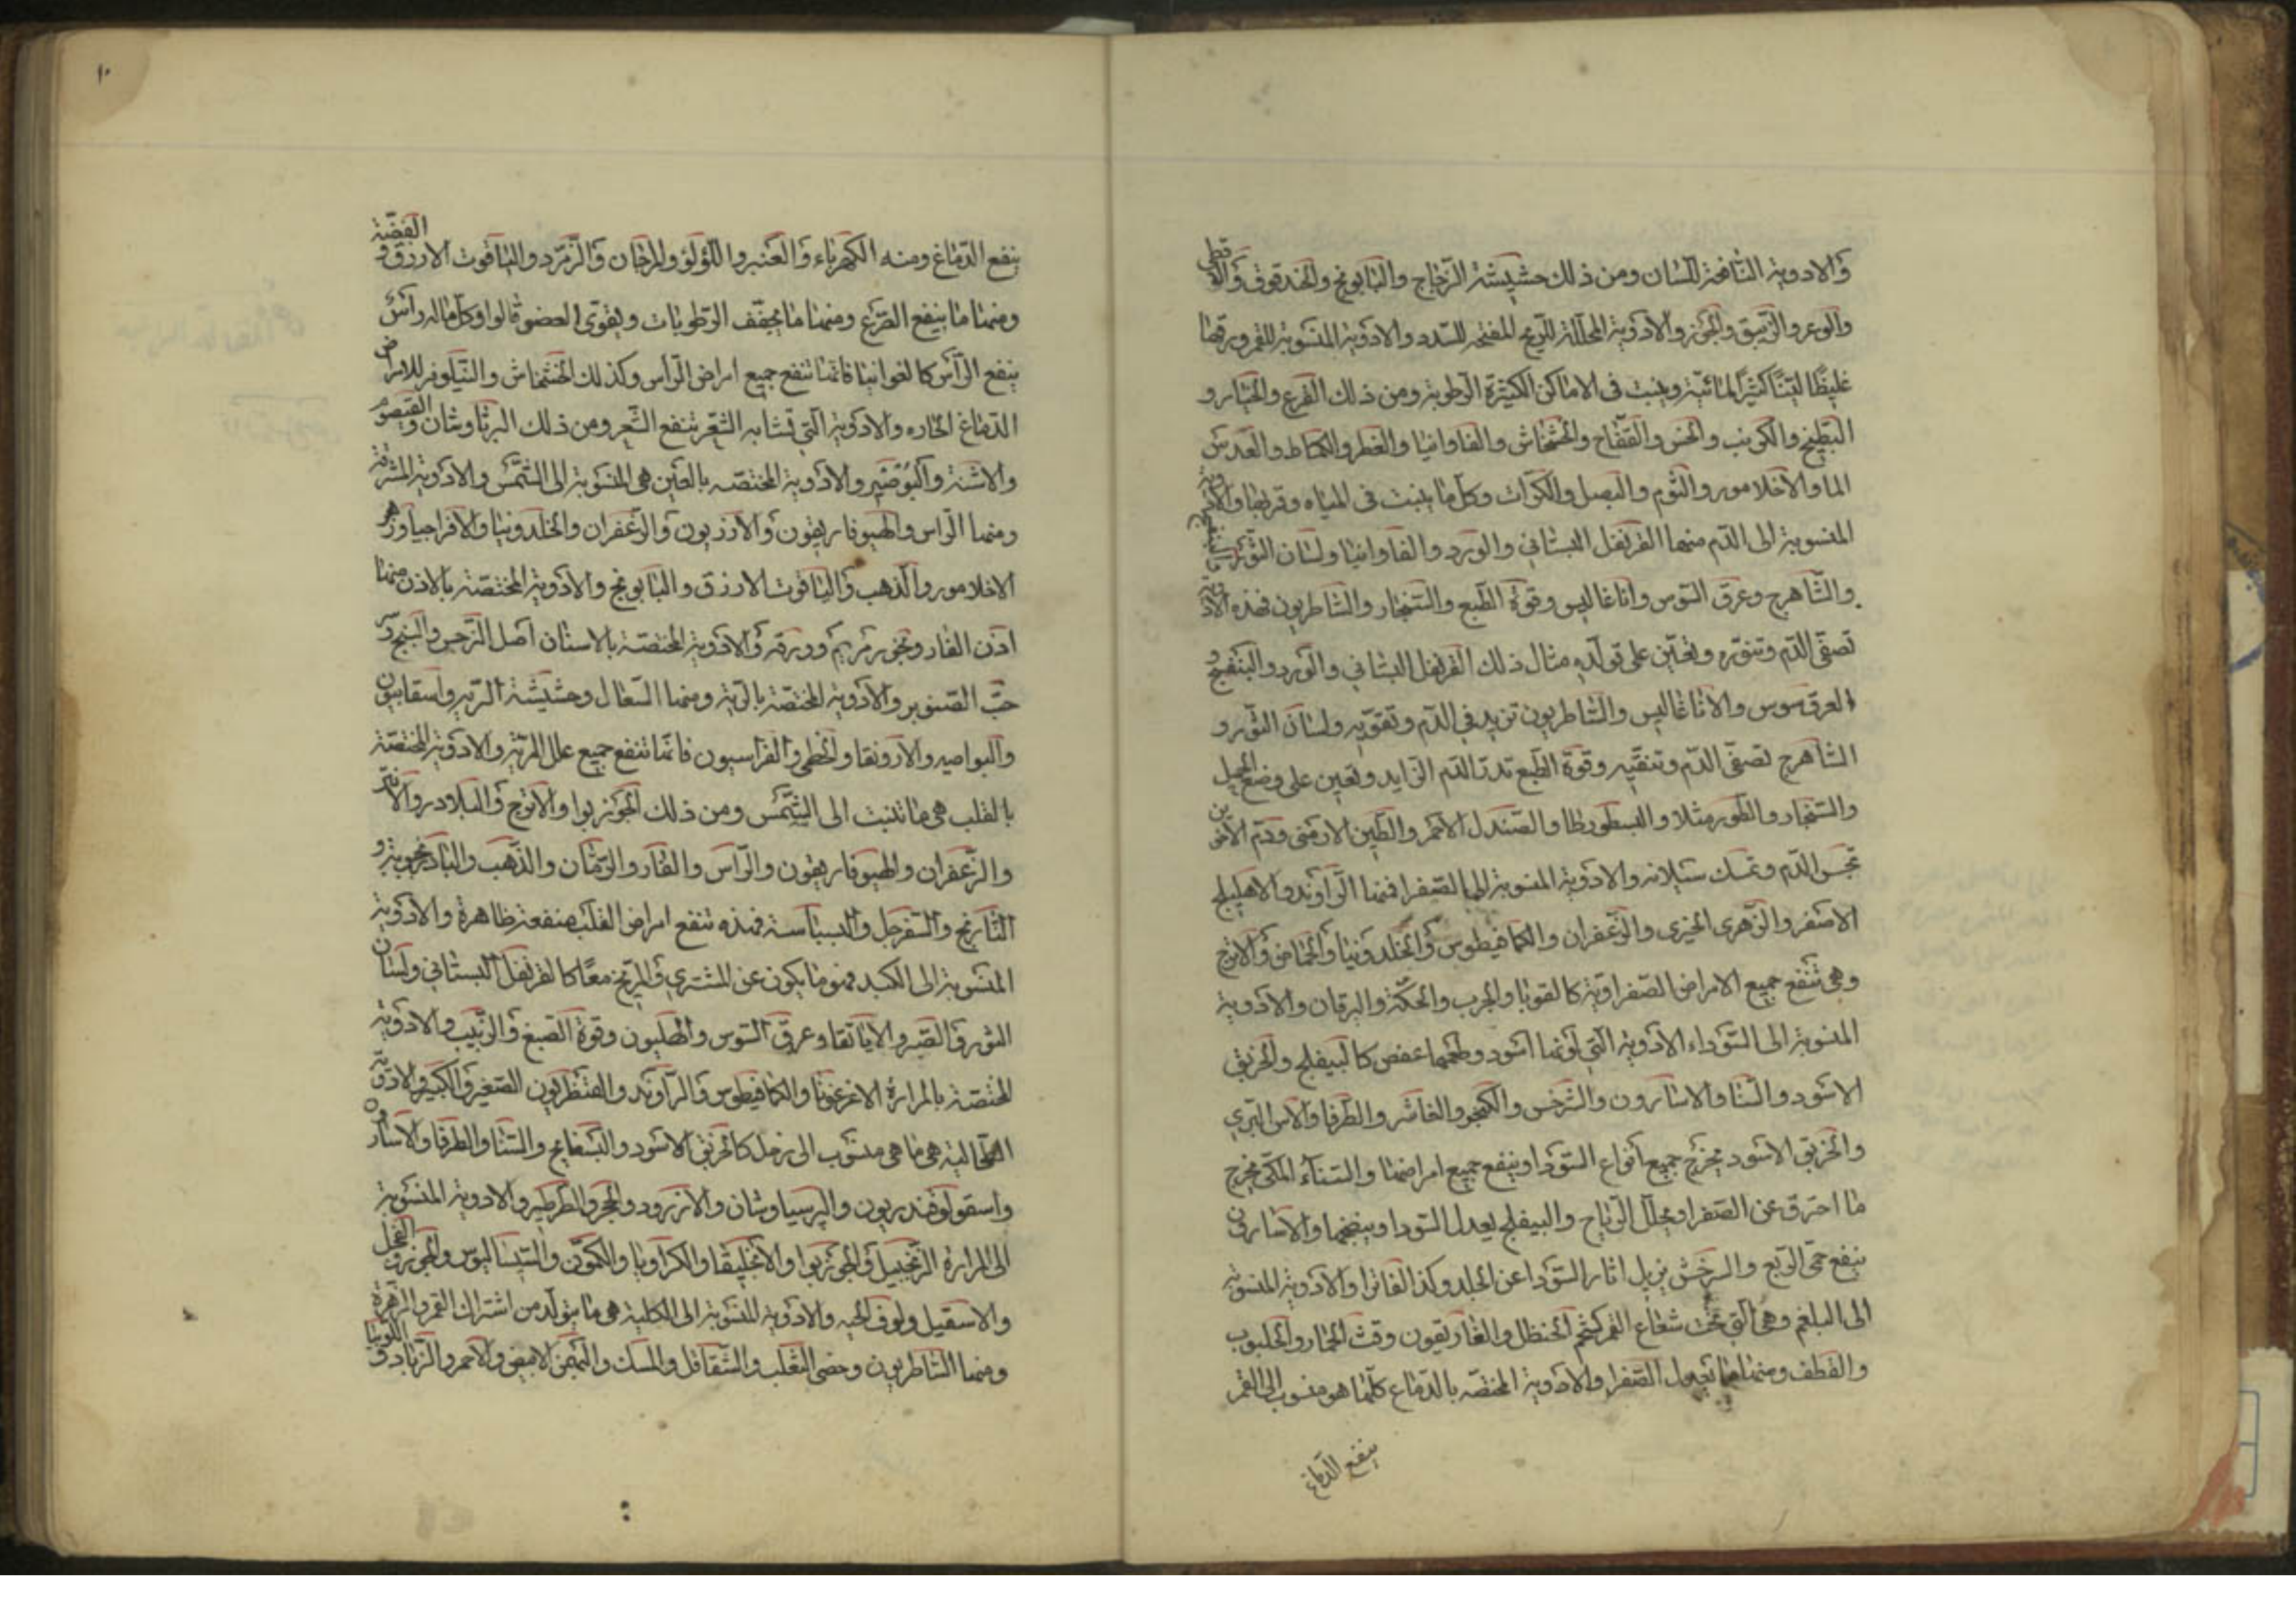 والادوية النافعة للسان ومن ذلك حشيشة الزجاج والبابونج والحندقوق والاقطى
والوعر والزيبق والجوز والادوية المحللة للريح المفتحة للسدد والادوية المنسوبة للقمر ورقها
غليظا لينا كثير المائية وينبت فى الاماكن الكثيرة الرطوبة ومن ذلك القرع والخيار و
البطيخ والكرنب والخس والتفاح والخشخاش والفاوانيا والفطر والكماط والعدس
الما والاخلامور والثوم والبصل والكراث وكل ما ينبت فى المياه وقربها والادوية
المنسوبة الى الدم منها القرنفل البستاني والورد والفاوانيا ولسان الثور والبنفسج
والشاهرج وعرق السوس واناغاليس وقوة الطبع والشنجار والشاطريون فهذه الادوية
تصفى الدم وتنوره وتعين على تولده مثال ذلك القرنفل البستاني والورد والبنفسج و
العرق سوس والاناغاليس والشاطريون تزيد في الدم وتقويه ولسان الثور و
الشاهرج تصفى الدم وتنقيه وقوة الطبع تدر الدم الزايد وتعين على وضع الحمل
والشنجار والطورمثلا والبسطورطا والصندل الاحمر والطين الارمنى ودم الاخوين
تحبس الدم وتمسك سيلانه والادوية المنسوبة الى الصفرا فمنها الراوند والاهليلج
الاصفر والزهرى الخيرى والزعفران والكمافيطوس والخلدونيا والحماض والاترج
وهى تنفع جميع الامراض الصفراوية كالقوبا والجرب والحكة واليرقان والادوية
المنسوبة الى السوداء الادوية التى لونها اسود وطعمها عفص كالبسفايج والخربق
الاسود والسنا والاسارون والسرخس والكمجو والفاشر والطرفا والاس البري
والخربق الاسود يخرج جميع انواع السودا وينفع جميع امراضها والسناء المكى يخرج
ما احترق عن الصفرا ويحلل الرياح والبسفايج يعدل السودا وينضجها والاسارون
ينفع حمى الربع والسرخس يزيل اثار السودا عن الجلد وكذا الفاشرا والادوية المنسوبة
الى البلغم وهى التى تحت شعاع القمر كشحم الحنظل والغاريقون وقثا الحمار والحلبوب
والقطف ومنها ما تعدل الصفرا والادوية المختصه بالدماغ كلما هو منسوب الى القمر
ينفع الدماغ
١٠
ينفع الدماغ ومنه الكهرباء والعنبر واللؤلؤ والمرجان والزمرد والياقوت الازرق والفضة
ومنها ما ينفع الصرع ومنها ما يجفف الرطوبات ويقوى العضو قالوا وكل ماله رأس
ينفع الرأس كالفوانيا فانها تنفع جميع امراض الرأس وكذلك الخشخاش والنيلوفر للامراض
الدماغ الحاره والادوية التى تشابه الشعر تنفع الشعر ومن ذلك البرشاوشان والقيصوم
والاشنة والبوصير والادوية المختصه بالعين هى المنسوبة الى الشمس والادوية المشرقة
ومنها الراس والهيوفاريقون والاذريون والزعفران والخلدونيا والافراحيا وزهر
الاخلامور والذهب والياقوت الازرق والبابونج والادوية المختصة بالاذن منها
اذن الفار وبخور مريم وورقه والادوية المختصة بالاسنان اصل النرجس والبنج و
حب الصنوبر والادوية المختصة بالرية ومنها السعال وحشيشة الرية واسقابيون
والبواصير والارونقا والخطمى والفراسيون فانها تنفع جميع علل الرية والادوية المختصة
بالقلب هى ما تنبث الى الشمس ومن ذلك الجوزبوا والاترج والبلادر
والزعفران والهيوفاريقون والراس والفار والرمان والذهب والبادرنجبوية و
النارنج والسفرجل والبسباسة فهذه تنفع امراض القلب منفعة ظاهرة والادوية
المنسوبة الى الكبد فهو ما يكون عن المشترى والمريخ معا كالقرنفل البستانى ولسان
الثور والصبر والاياتقا وعرق السوس والهليون وقوة الصبغ والزبيب والادوية
المختصة بالمرارة الاغرغونا والكمافيطوس والراوند والقنطريون الصغير والكبير والادوية
الطحالية هى ما هى منسوب الى زحل كالخربق الاسود والبسفايج والسنا والطرفا والاسارون
واسقولوفندريون والبرسياوشان والانزرود والحجر والطرطير والادوية المنسوبة
الى المرارة الزنجبيل والجوزبوا والانجليقا والكراويا والكمون والسيساليوس والجوز والفجل
والاسقيل ولوف الحيه والادوية المنسوبة الى الكلية هى ما يتولد من اشتراك القمر والزهرة
ومنها الشاطريون وخصى الثعلب والشقاقل والمسك والبهمن الابيض والاحمر والزباد واللوبيا